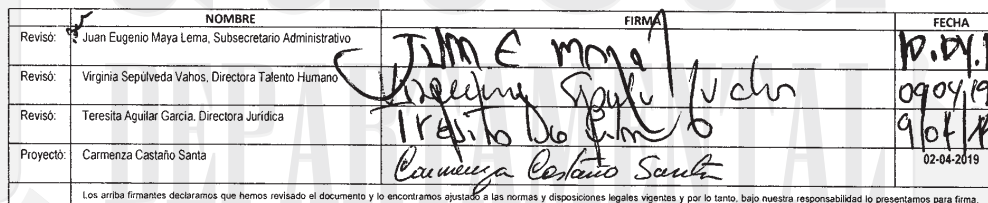 NOMBRE FIRMA FECHA
Revisó: Juan Eugenio Maya Lema, Subsecretario Administrativo Juan E Maya
Revisó: Virginia Sepúlveda Vahos, Directora Talento Humano 09/04/19
Revisó: Teresita Aguilar García, Directora Jurídica
Proyectó: Carmenza Castaño Santa Carmenza Castaño Santa 02-04-2019
Los arriba firmantes declaramos que hemos revisado el documento y lo encontramos ajustado a las normas y disposiciones legales vigentes y por lo tanto, bajo nuestra responsabilidad lo presentamos para firma.